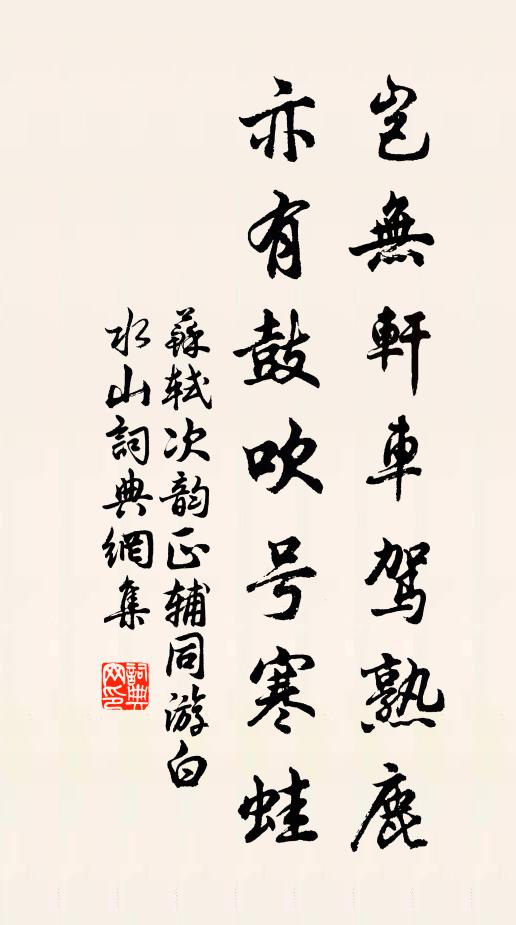 豈無軒車駕熟鹿
亦有鼓吹号寒蛙
蘇軾次韵正輔同游白
水山詞典網集
詞典
网印